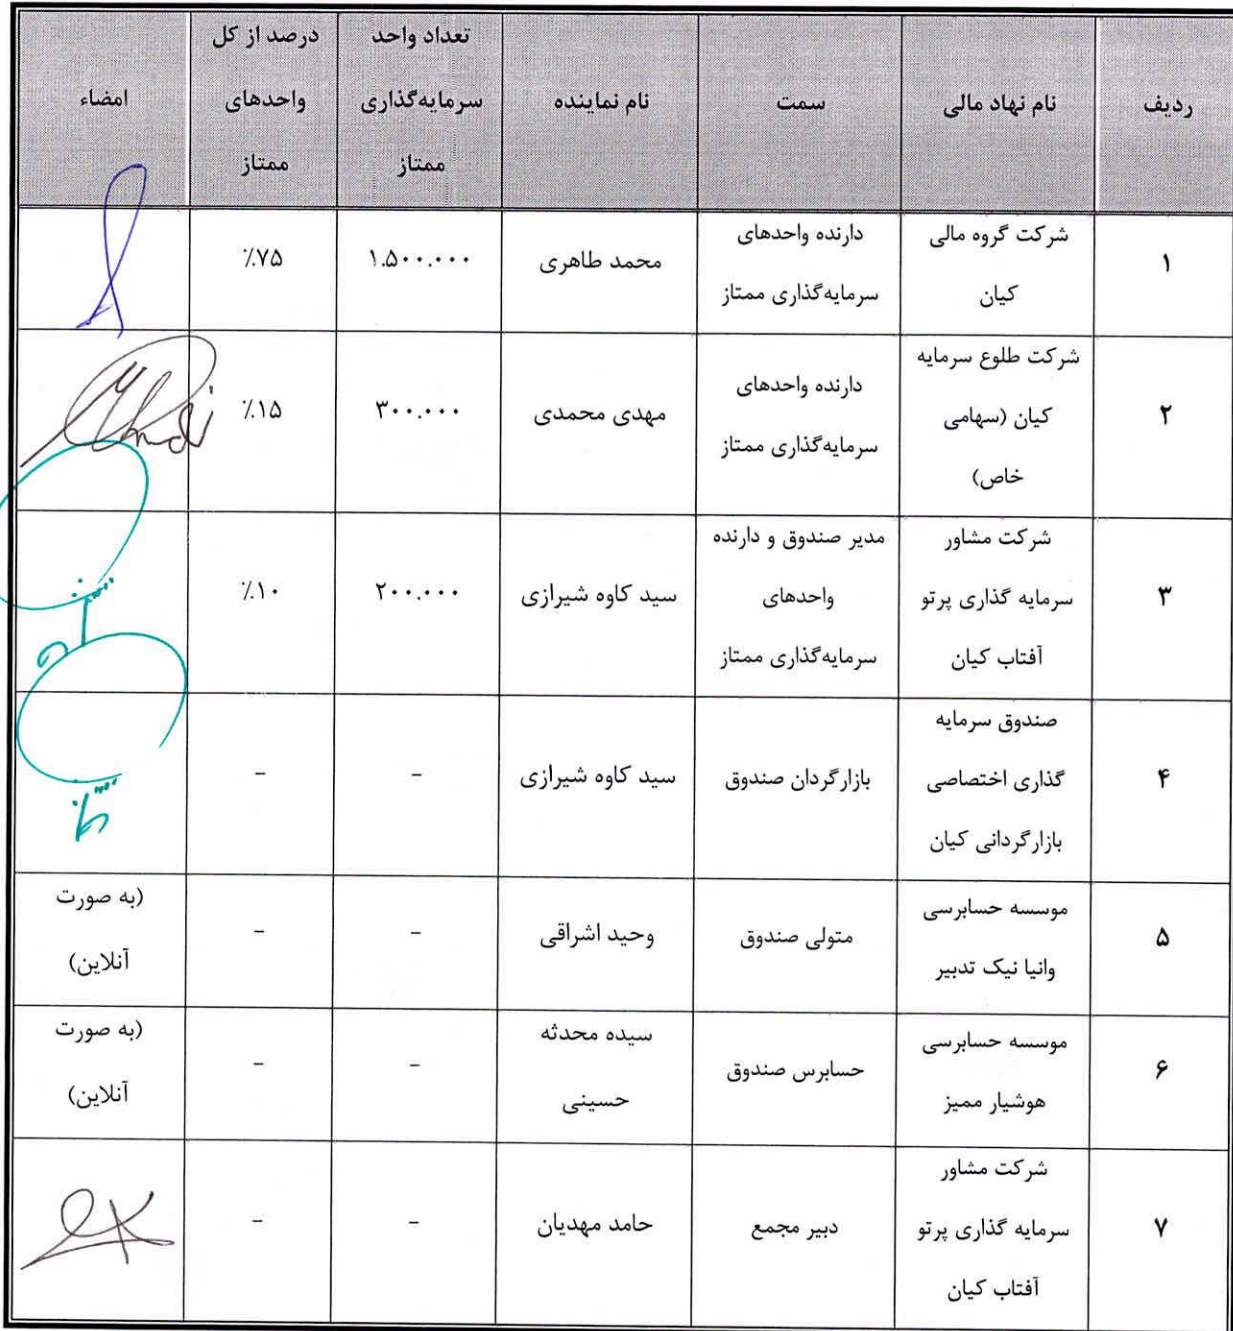 ردیف
نام نهاد مالی
سمت
نام نماینده
تعداد واحد
سرمایه‌گذاری
ممتاز
درصد از کل
واحدهای
ممتاز
امضاء
۱
شرکت گروه مالی
کیان
دارنده واحدهای
سرمایه‌گذاری ممتاز
محمد طاهری
۱.۵۰۰.۰۰۰
٪۷۵
۲
شرکت طلوع سرمایه
کیان (سهامی
خاص)
دارنده واحدهای
سرمایه‌گذاری ممتاز
مهدی محمدی
۳۰۰.۰۰۰
٪۱۵
۳
شرکت مشاور
سرمایه گذاری پرتو
آفتاب کیان
مدیر صندوق و دارنده
واحدهای
سرمایه‌گذاری ممتاز
سید کاوه شیرازی
۲۰۰.۰۰۰
٪۱۰
۴
صندوق سرمایه
گذاری اختصاصی
بازارگردانی کیان
بازارگردان صندوق
سید کاوه شیرازی
-
-
۵
موسسه حسابرسی
وانیا نیک تدبیر
متولی صندوق
وحید اشراقی
-
-
(به صورت
آنلاین)
۶
موسسه حسابرسی
هوشیار ممیز
حسابرس صندوق
سیده محدثه
حسینی
-
-
(به صورت
آنلاین)
۷
شرکت مشاور
سرمایه گذاری پرتو
آفتاب کیان
دبیر مجمع
حامد مهدیان
-
-